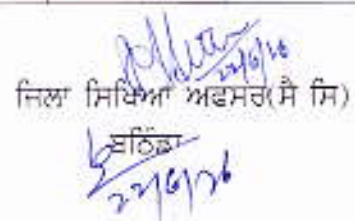 22/6/26
ਜਿਲਾ ਸਿਖਿਆ ਅਫਸਰ(ਸੈ ਸਿ)
ਬਠਿੰਡਾ
22/6/26